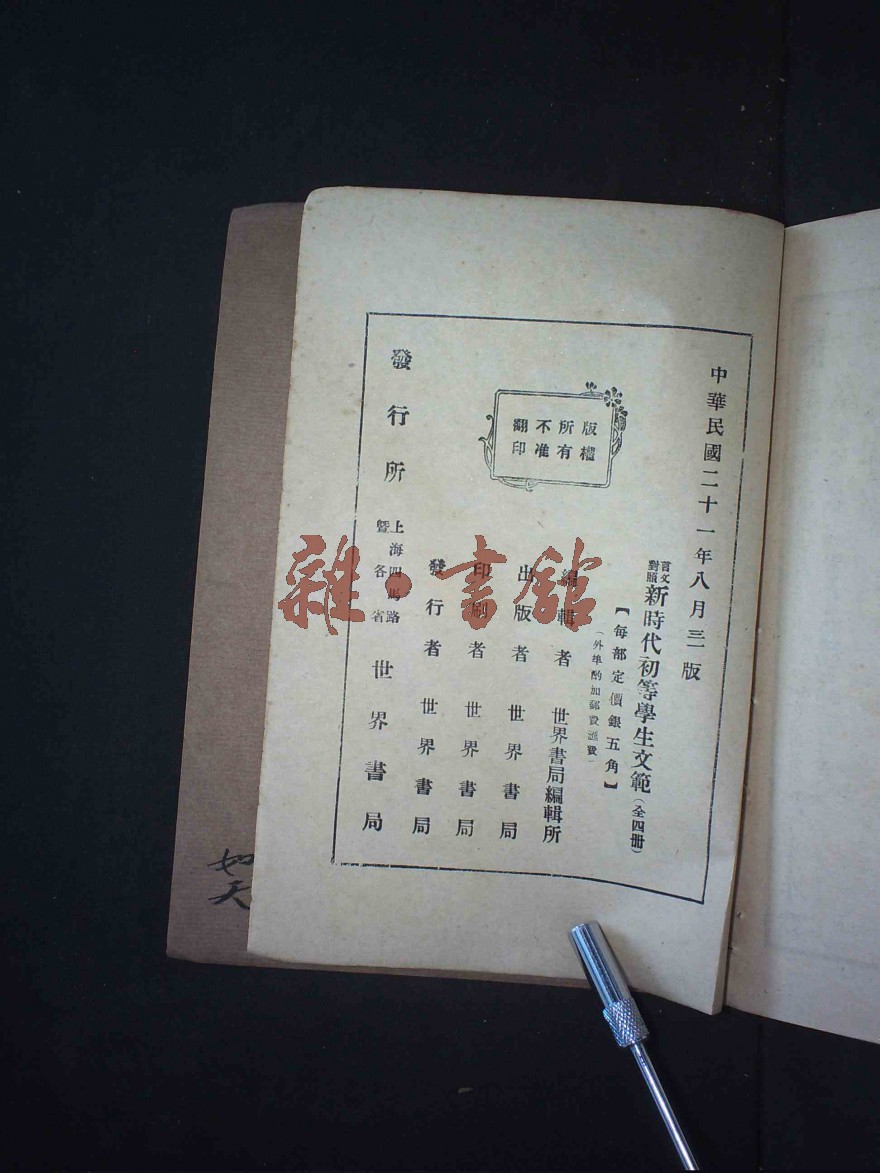 中華民國二十一年八月三版
言文對照 新時代初等學生文範(全四冊)
【每部定價銀五角】
(外埠酌加郵費匯費)
編輯者 世界書局編輯所
出版者 世界書局
印刷者 世界書局
發行者 世界書局
版權所有不准翻印
發行所 上海四馬路暨各省 世界書局
雜·書館
如
天